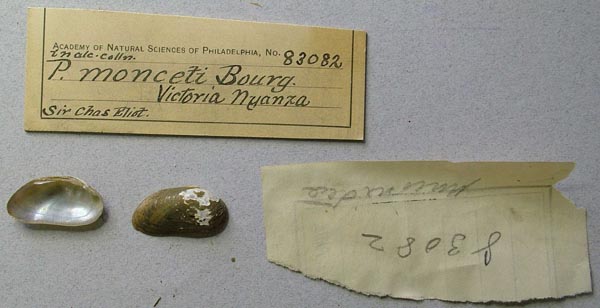 ACADEMY OF NATURAL SCIENCES OF PHILADELPHIA, NO. 83082
in alc. colln.
P. monceti Bourg.
Victoria Nyanza
Sir Chas Eliot.
83082